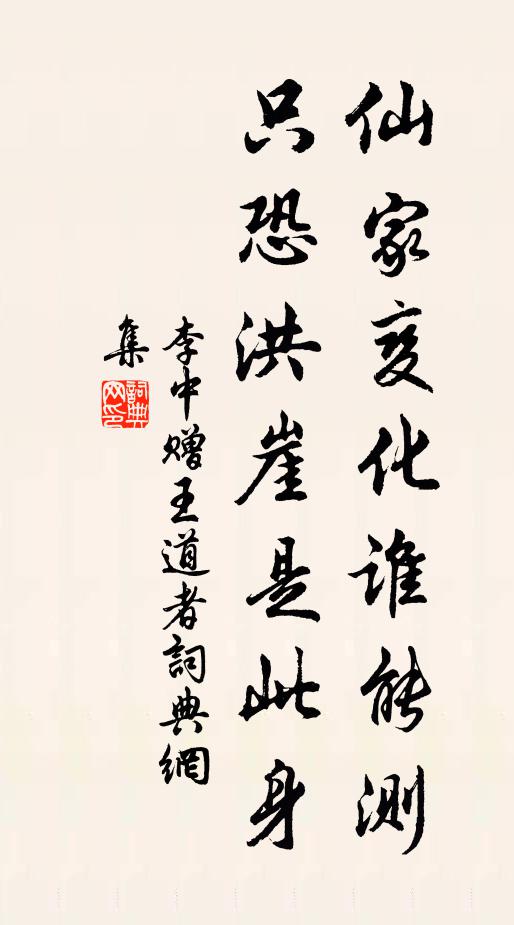 仙家变化谁能测
只恐洪崖是此身
李中赠王道者詞典網
集
詞典网印